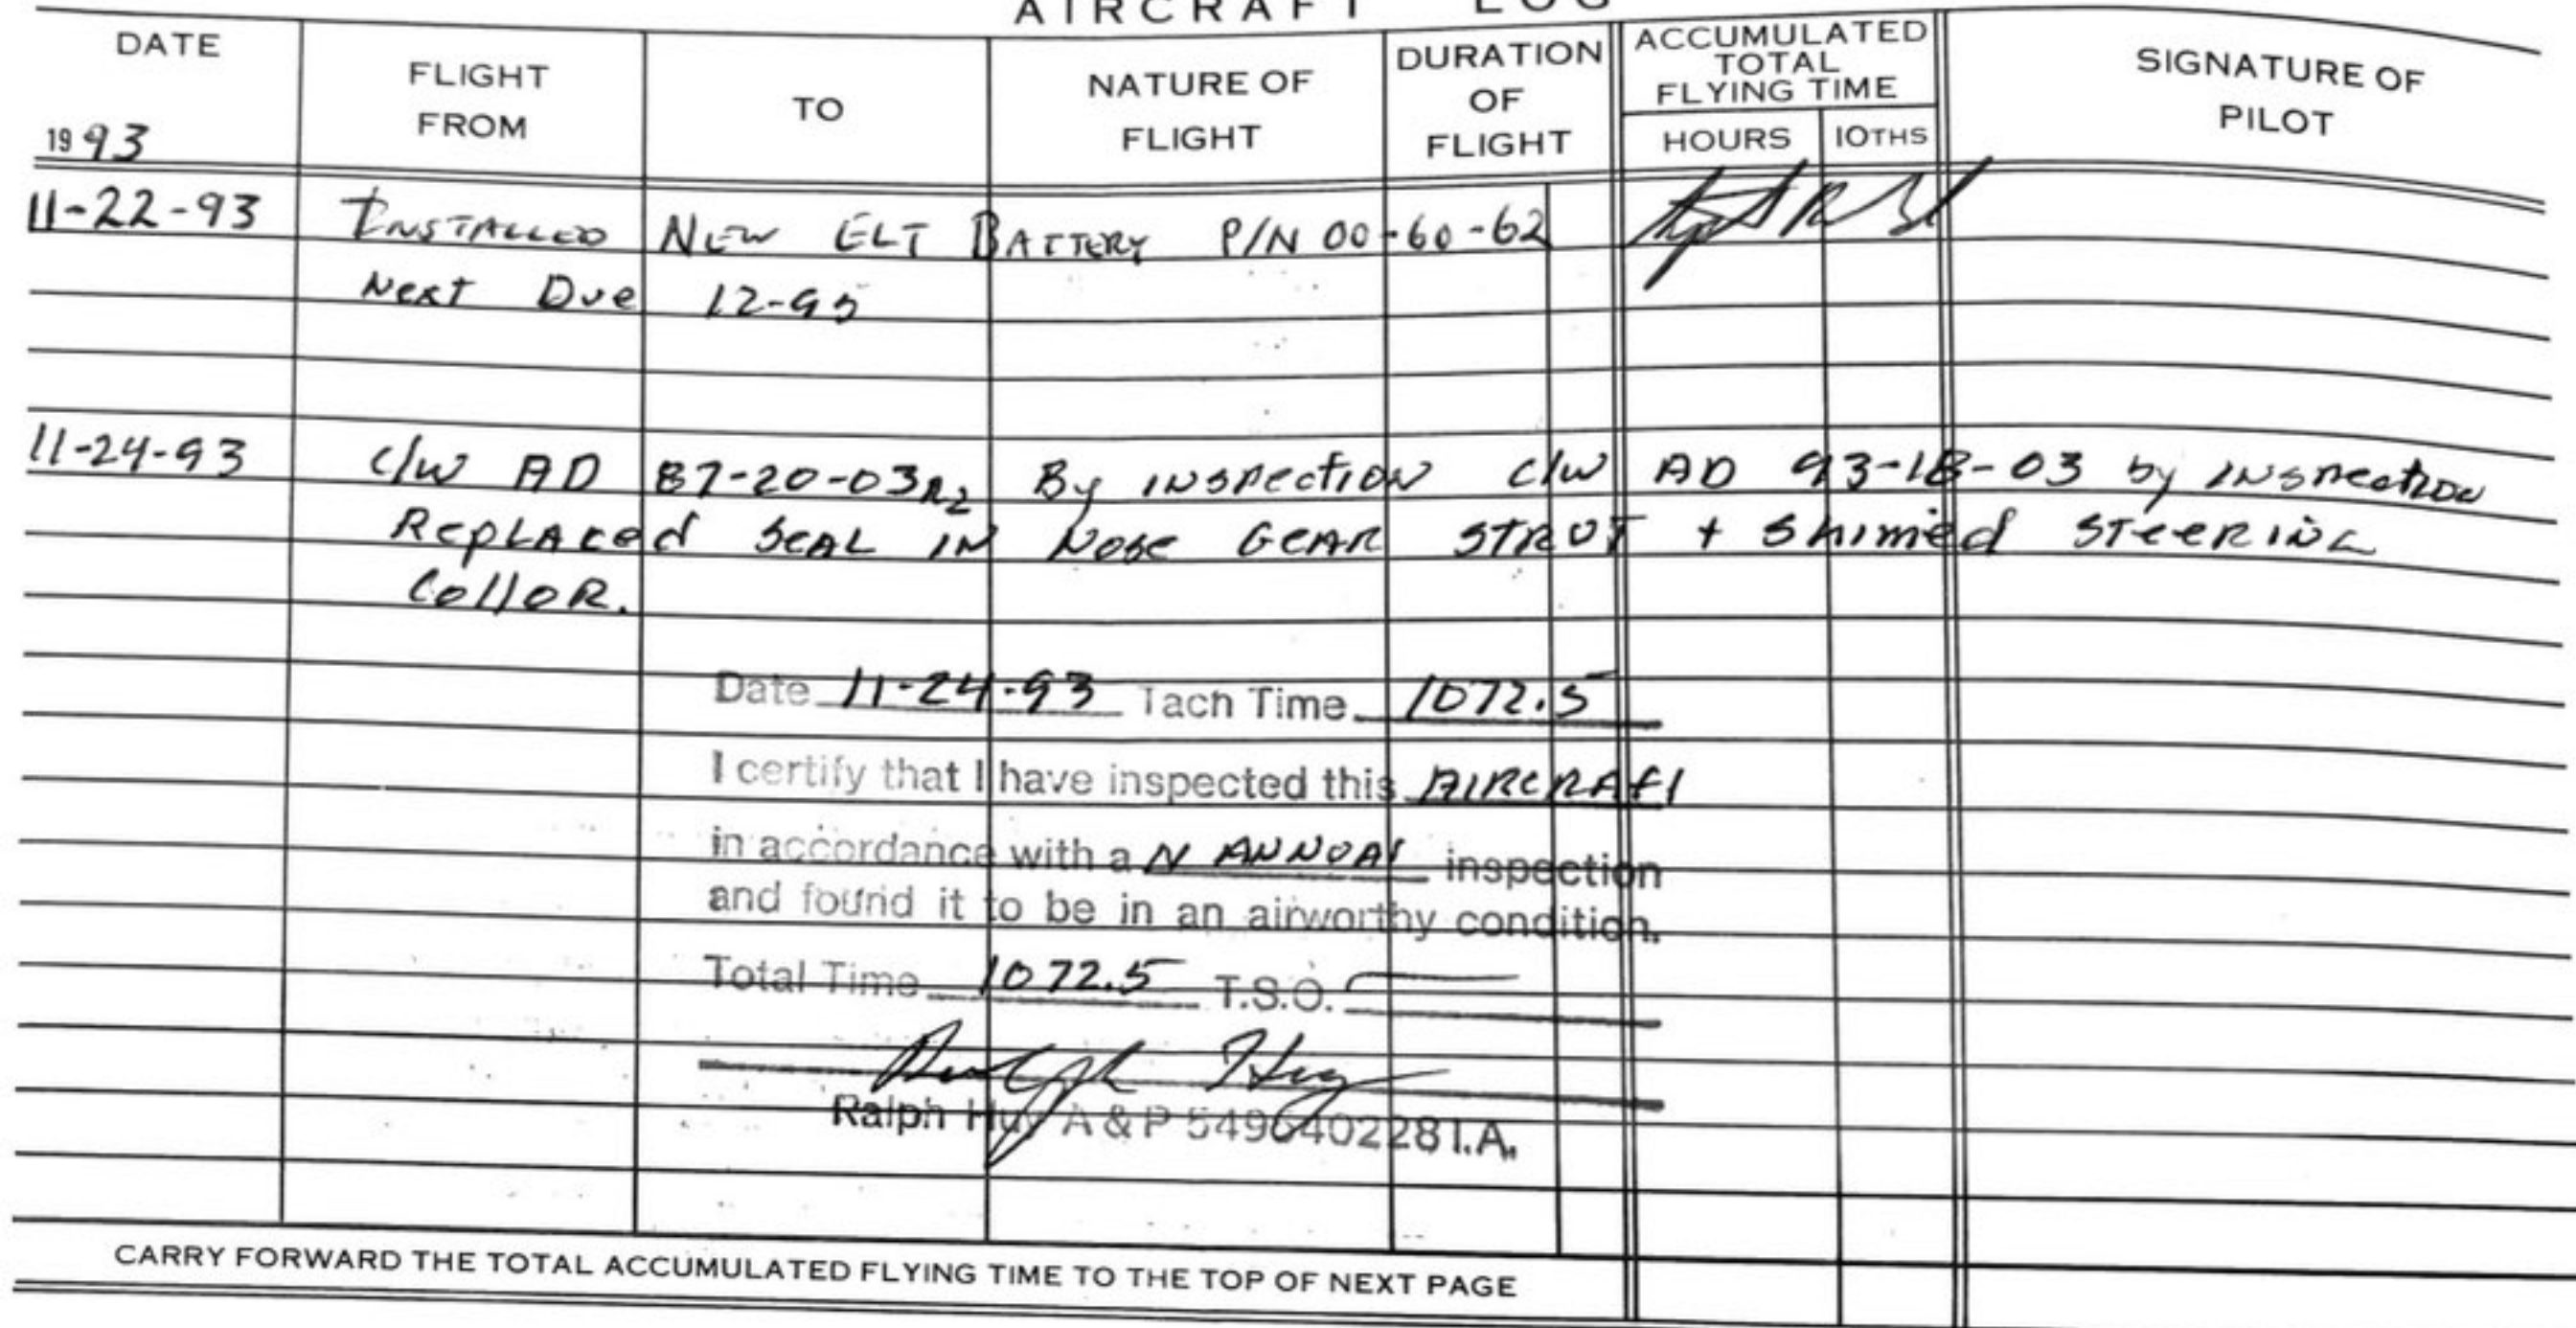 AIRCRAFT LOG
DATE
1993
FLIGHT
FROM
TO
NATURE OF
FLIGHT
DURATION
OF
FLIGHT
ACCUMULATED
TOTAL
FLYING TIME
HOURS
10THS
SIGNATURE OF
PILOT
11-22-93 INSTALLED NEW ELT BATTERY P/N 00-60-62
Next Due 12-95
11-24-93 C/W AD 87-20-03R2 By INSPection C/W AD 93-18-03 by INSPection
RePLACed SeAL IN Nose GeAR STRUT + Shimed STeeRING
CollOR.
Date 11-24-93 Tach Time 1072.5
I certify that I have inspected this AIRCRAft
in accordance with a N ANNUAl inspection
and found it to be in an airworthy condition.
Total Time 1072.5 T.S.O. —
Ralph Huy
Ralph Huy A & P 549640228 I.A.
CARRY FORWARD THE TOTAL ACCUMULATED FLYING TIME TO THE TOP OF NEXT PAGE